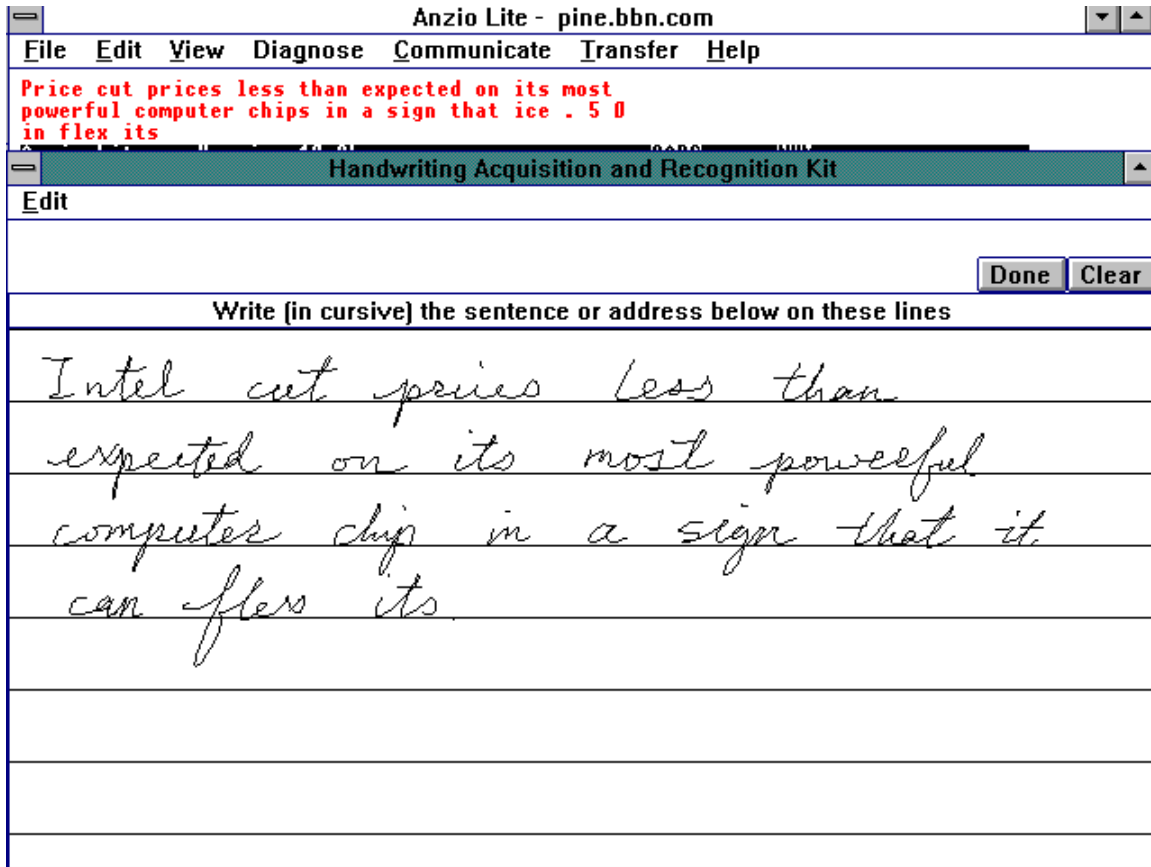 Anzio Lite - pine.bbn.com
File Edit View Diagnose Communicate Transfer Help
Price cut prices less than expected on its most
powerful computer chips in a sign that ice . 5 0
in flex its
Handwriting Acquisition and Recognition Kit
Edit
Done Clear
Write (in cursive) the sentence or address below on these lines
Intel cut prices less than
expected on its most powerful
computer chip in a sign that it
can fless its.